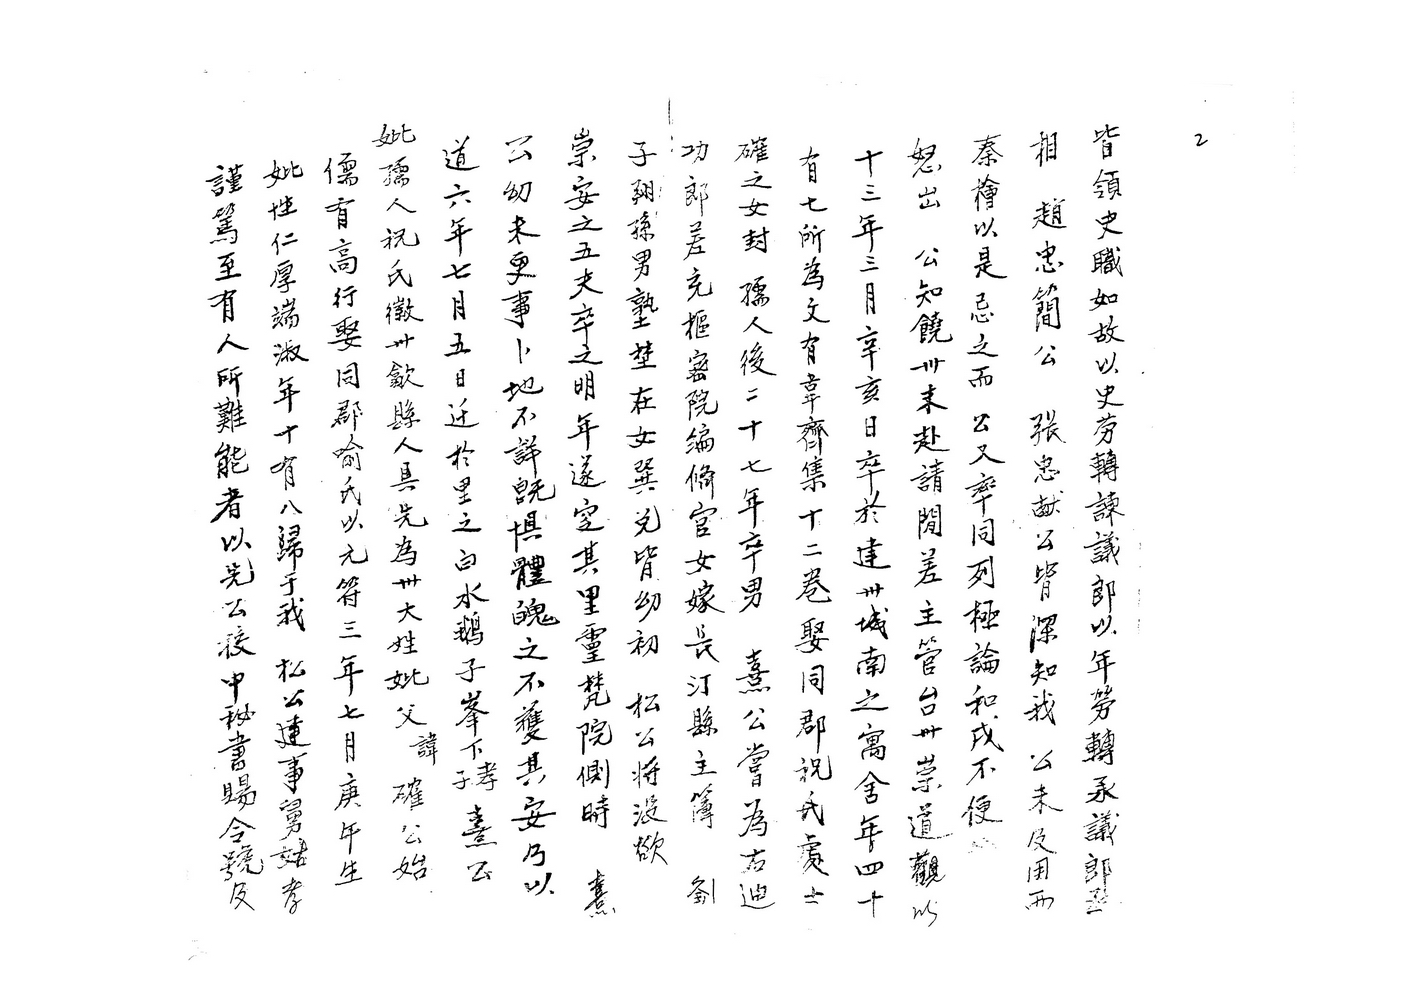 2
皆領史職如故以史劳轉諫議郎以年勞轉承議郎丞
相 趙忠簡公 張忠献公皆深知我 公未及用而
秦檜以是忌之而 公又率同列極論和戎不便
怒出 公知饒卅未赴請閒差主管台卅崇道觀以
十三年三月辛亥日卒於建卅城南之寓舍年四十
有七所為文有韋齊集十二卷娶同郡祝氏處士
確之女封 孺人後二十七年卒男 熹公嘗為右迪
功郎差充樞密院編脩官女嫁長汀縣主簿 劉
子翔孫男塾埜在女巽兑皆幼初 松公将没欲
崇安之五夫卒之明年遂定其里靈梵院側時 熹
公幼未更事卜地不詳既惧體魄之不獲其安乃以
道六年七月五日迁於里之白水鵝子峯下孝子 熹公
妣孺人祝氏徽卅歙縣人具先為卅大姓妣父諱 確公始
儒有高行娶同郡喻氏以元符三年七月庚午生
妣性仁厚端淑年十有八歸于我 松公逮事舅姑孝
謹篤至有人所難能者以先公校中秘書賜令號及